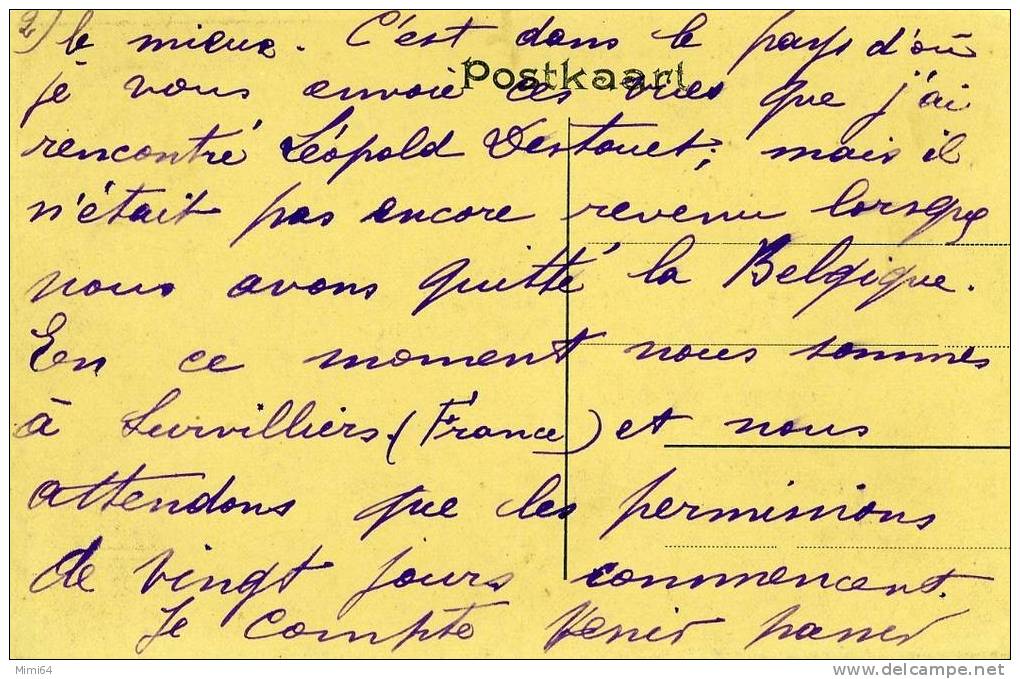 2) le mieux. C'est dans le pays d'où
Postkaart
je vous envoie ces vues que j'ai
rencontré Léopold Destouet; mais il
n'était pas encore revenu lorsque
nous avons quitté la Belgique.
En ce moment nous sommes
à Survilliers (France) et nous
attendons que les permissions
de vingt jours commencent.
Je compte venir passer
Mimi64
www.delcampe.net